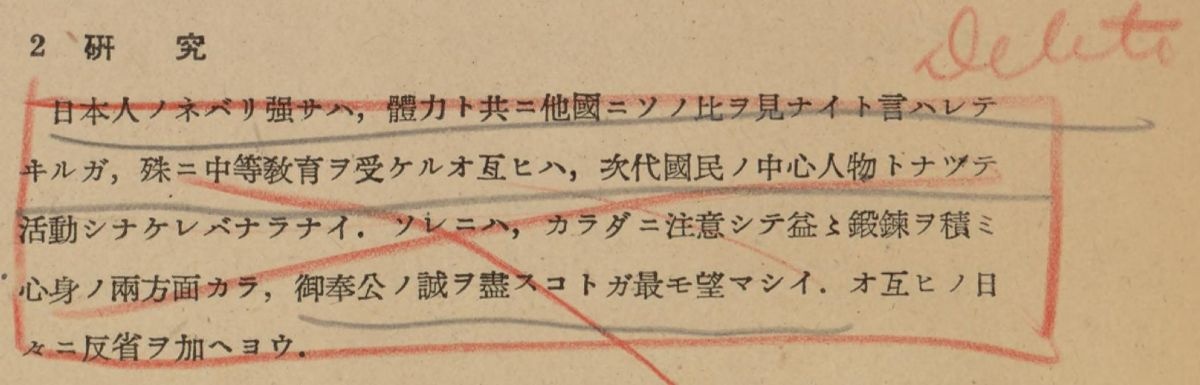 2 研 究
Delete
日本人ノネバリ強サハ，體力ト共ニ他國ニソノ比ヲ見ナイト言ハレテ
ヰルガ，殊ニ中等教育ヲ受ケルオ互ヒハ，次代國民ノ中心人物トナツテ
活動シナケレバナラナイ．ソレニハ，カラダニ注意シテ益〻鍛鍊ヲ積ミ
心身ノ兩方面カラ，御奉公ノ誠ヲ盡スコトガ最モ望マシイ．オ互ヒノ日
々ニ反省ヲ加ヘヨウ．